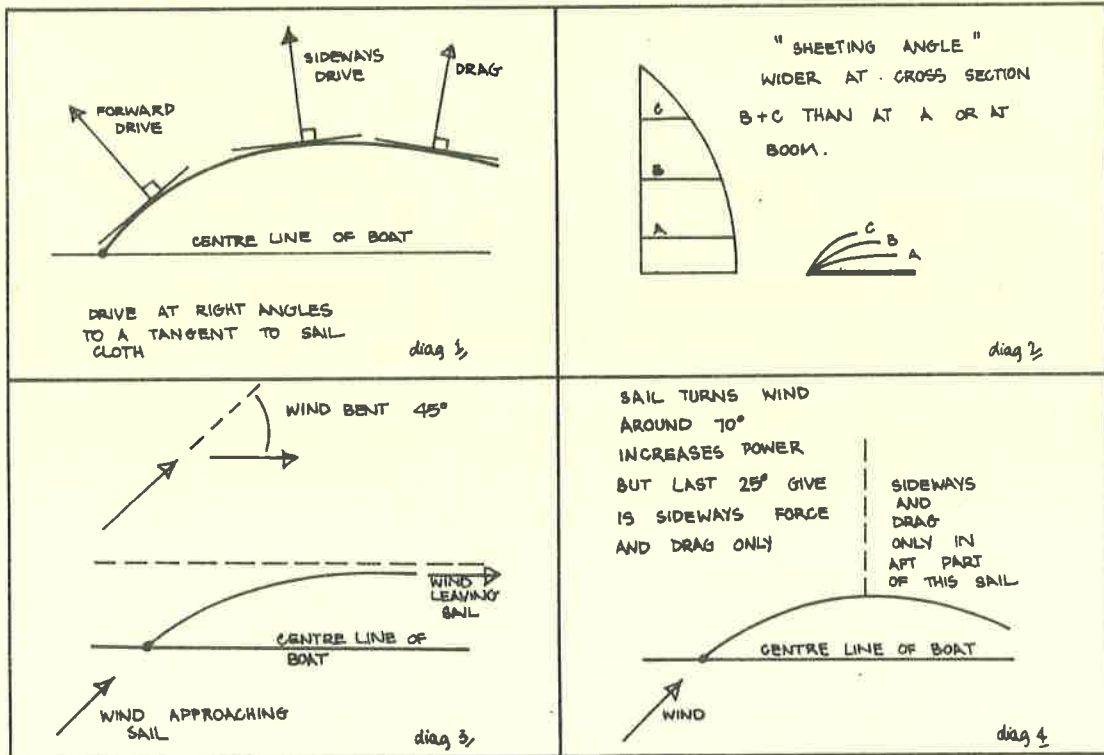 FORWARD
DRIVE
SIDEWAYS
DRIVE
DRAG
CENTRE LINE OF BOAT
DRIVE AT RIGHT ANGLES
TO A TANGENT TO SAIL
CLOTH
diag 1,
"SHEETING ANGLE"
WIDER AT CROSS SECTION
B+C THAN AT A OR AT
BOOM.
C
B
A
C
B
A
diag 2
WIND BENT 45°
WIND
LEAVING
SAIL
CENTRE LINE OF
BOAT
WIND APPROACHING
SAIL
diag 3,
SAIL TURNS WIND
AROUND 70°
INCREASES POWER
BUT LAST 25° GIVE
IS SIDEWAYS FORCE
AND DRAG ONLY
SIDEWAYS
AND
DRAG
ONLY IN
AFT PART
OF THIS SAIL
CENTRE LINE OF BOAT
WIND
diag 4